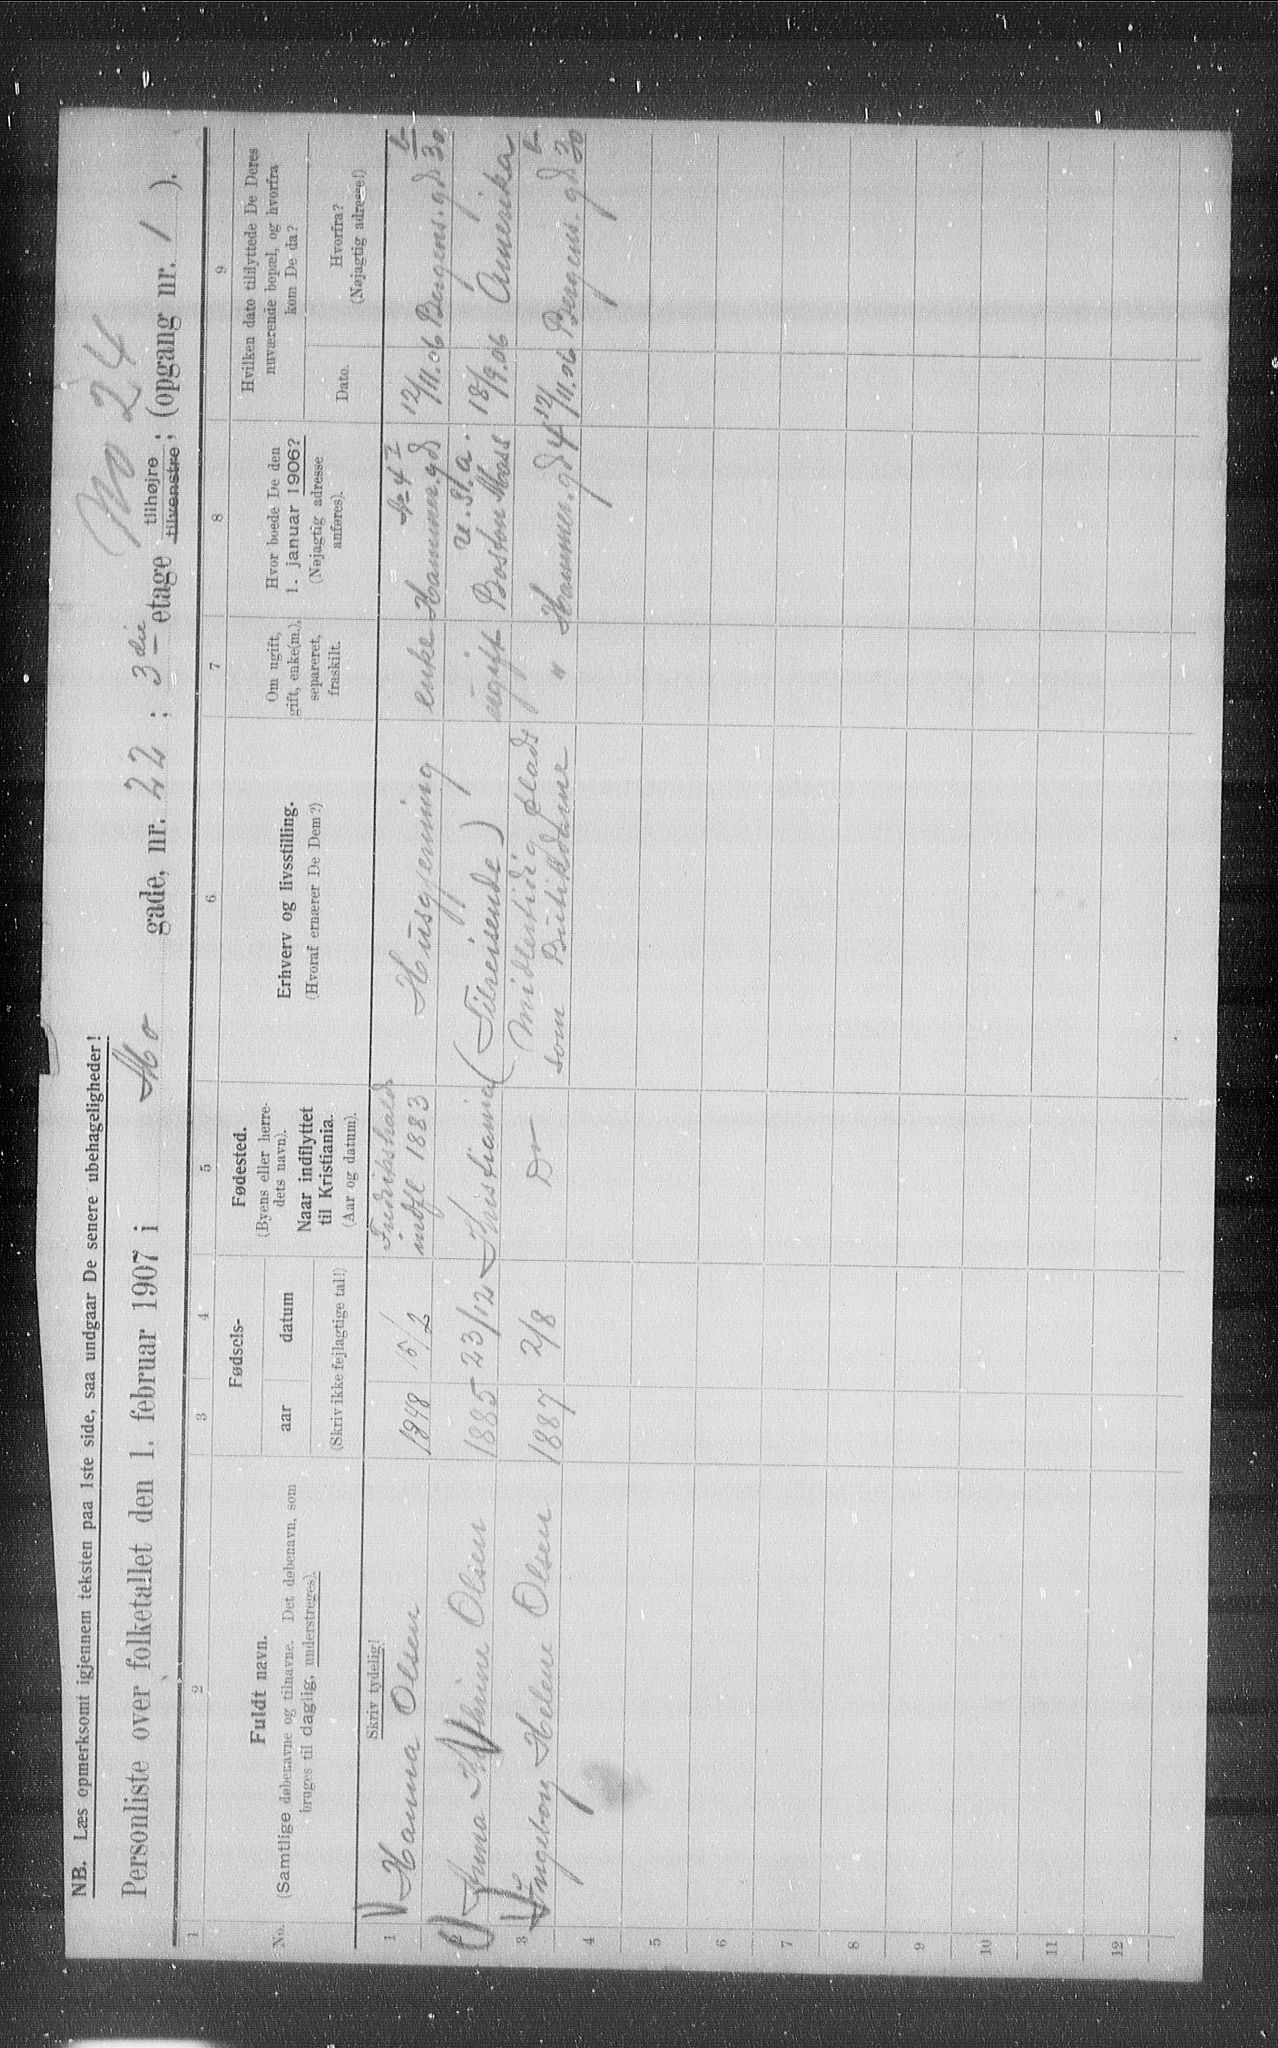 No 24
NB. Læs opmerksomt igjennem teksten paa 1ste side, saa undgaar De senere ubehageligheder!
Personliste over folketallet den 1. februar 1907 i Mo gade, nr. 22 ; 3die etage tilhøjre tilvenstre; (opgang nr. 1 ).
1 2 3 4 5 6 7 8 9
No.
Fuldt navn.
(Samtlige døbenavne og tilnavne. Det døbenavn, som
bruges til daglig, understreges).
Fødsels-
aar datum
(Skriv ikke fejlagtige tal!)
Fødested.
(Byens eller herre-
dets navn).
Naar indflyttet
til Kristiania.
(Aar og datum).
Erhverv og livsstilling.
(Hvoraf ernærer De Dem?)
Om ugift,
gift, enke(m.),
separeret,
fraskilt.
Hvor boede De den
1. januar 1906?
(Nøjagtig adresse
anføres).
Hvilken dato tilflyttede De Deres
nuværende bopæl, og hvorfra
kom De da?
Dato.
Hvorfra?
(Nøjagtig adresse!)
Skriv tydelig!
Fredrikshald No 4 I b
1 Hanna Olsen 1848 15/2 indfl 1883 Husgjerning enke Hammer.gd 12/11.06 Bergens.gd 30
U. St. a.
2 Anna Olsen 1885 23/12 Kristiania (Tilreisende) ugift Boston Mass 18/9.06 Amerika
midlertidig plads b
3 Ingeborg Helene Olsen 1887 2/8 Do som Butikdame " Hammer.gd 4 12/11.06 Bergens.gd 30
4
5
6
7
8
9
10
11
12